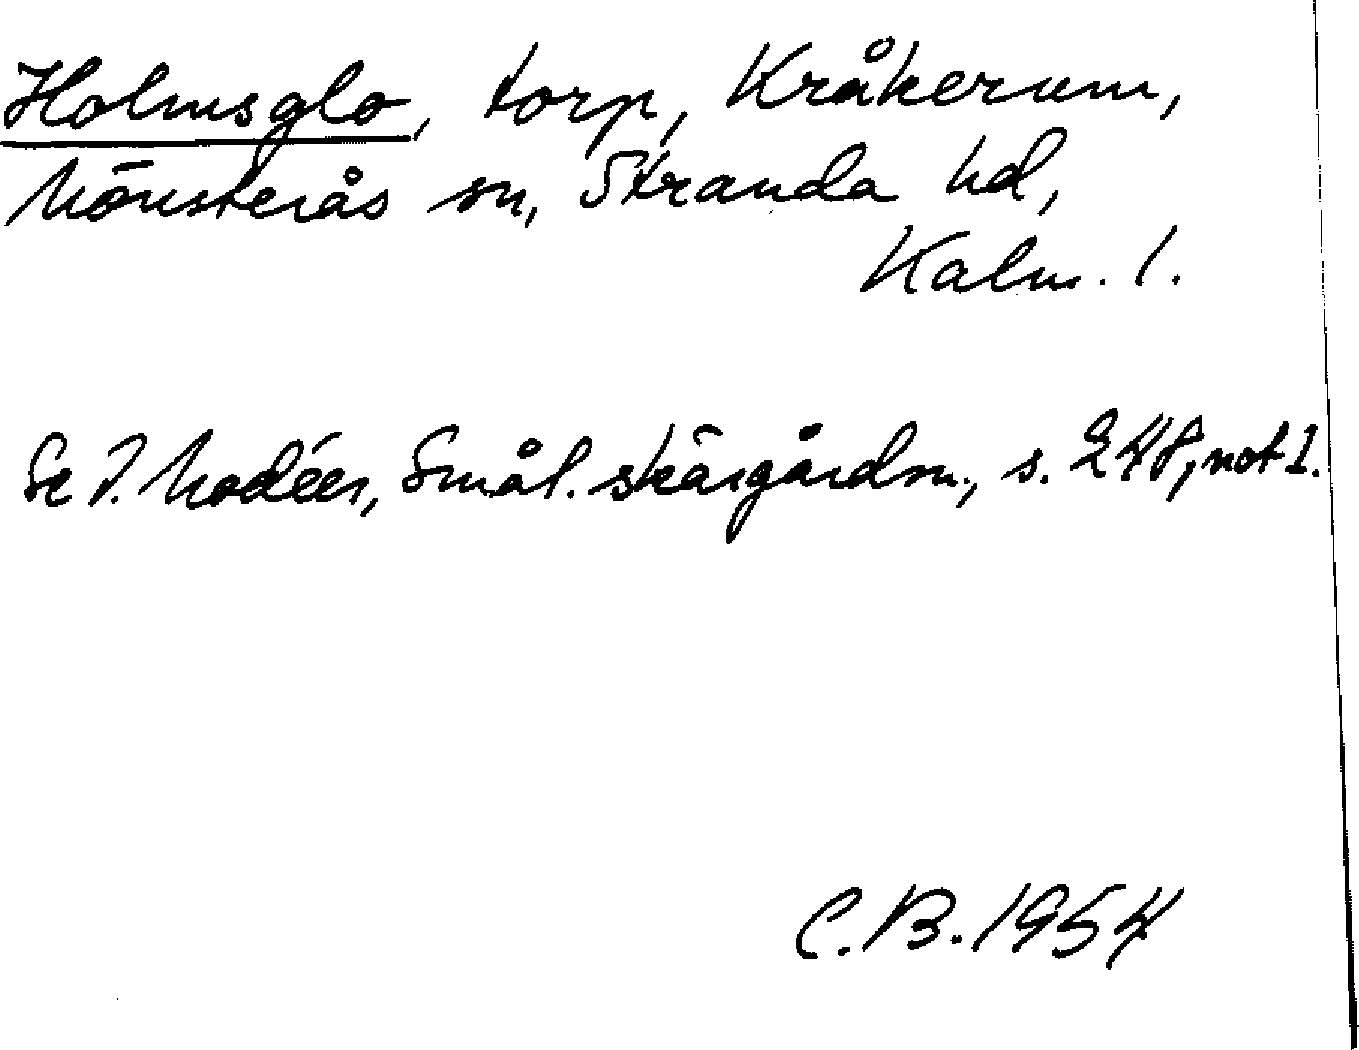 Holmsglo, torp, Kråkerum,
Mönsterås sn, Stranda hd,
Kalm. l.
Se I. Modéer, Smål. skärgårdsn., s. 248, not 1.
C.B. 1954